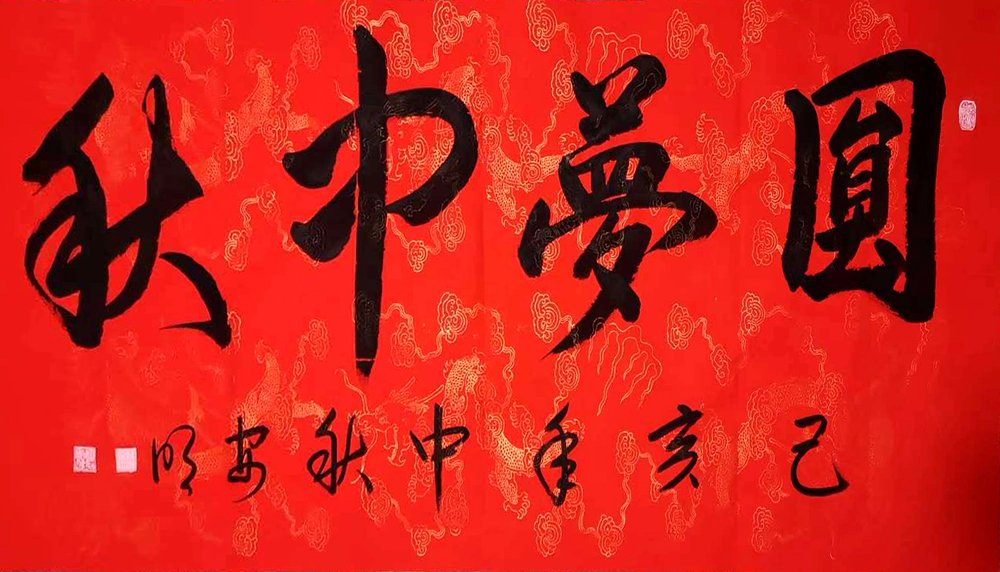 圓夢中秋
己亥年中秋安明